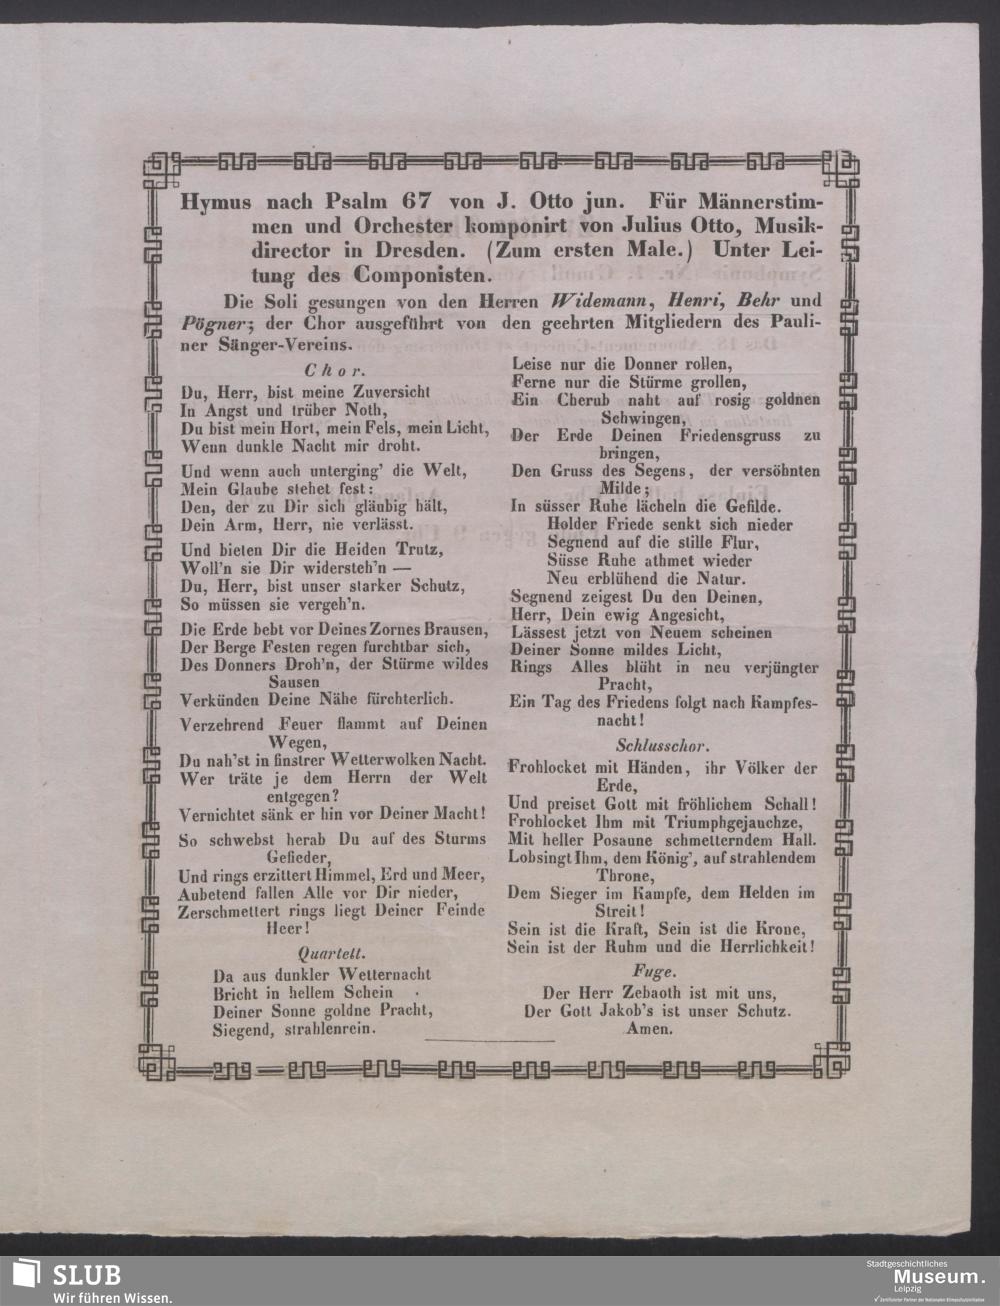 Hymus nach Psalm 67 von J. Otto jun. Für Männerstim-
men und Orchester komponirt von Julius Otto, Musik-
director in Dresden. (Zum ersten Male.) Unter Lei-
tung des Componisten.
Die Soli gesungen von den Herren Widemann, Henri, Behr und
Pögner; der Chor ausgeführt von den geehrten Mitgliedern des Pauli-
ner Sänger-Vereins.
Chor.
Du, Herr, bist meine Zuversicht
In Angst und trüber Noth,
Du bist mein Hort, mein Fels, mein Licht,
Wenn dunkle Nacht mir droht.
Und wenn auch unterging' die Welt,
Mein Glaube stehet fest:
Den, der zu Dir sich gläubig hält,
Dein Arm, Herr, nie verlässt.
Und bieten Dir die Heiden Trutz,
Woll'n sie Dir widersteh'n —
Du, Herr, bist unser starker Schutz,
So müssen sie vergeh'n.
Die Erde bebt vor Deines Zornes Brausen,
Der Berge Festen regen furchtbar sich,
Des Donners Droh'n, der Stürme wildes
Sausen
Verkünden Deine Nähe fürchterlich.
Verzehrend Feuer flammt auf Deinen
Wegen,
Du nah'st in finstrer Wetterwolken Nacht.
Wer träte je dem Herrn der Welt
entgegen?
Vernichtet sänk er hin vor Deiner Macht!
So schwebst herab Du auf des Sturms
Gefieder,
Und rings erzittert Himmel, Erd und Meer,
Anbetend fallen Alle vor Dir nieder,
Zerschmettert rings liegt Deiner Feinde
Heer!
Quartett.
Da aus dunkler Wetternacht
Bricht in hellem Schein
Deiner Sonne goldne Pracht,
Siegend, strahlenrein.
Leise nur die Donner rollen,
Ferne nur die Stürme grollen,
Ein Cherub naht auf rosig goldnen
Schwingen,
Der Erde Deinen Friedensgruss zu
bringen,
Den Gruss des Segens, der versöhnten
Milde;
In süsser Ruhe lächeln die Gefilde.
Holder Friede senkt sich nieder
Segnend auf die stille Flur,
Süsse Ruhe athmet wieder
Neu erblühend die Natur.
Segnend zeigest Du den Deinen,
Herr, Dein ewig Angesicht,
Lässest jetzt von Neuem scheinen
Deiner Sonne mildes Licht,
Rings Alles blüht in neu verjüngter
Pracht,
Ein Tag des Friedens folgt nach Kampfes-
nacht!
Schlusschor.
Frohlocket mit Händen, ihr Völker der
Erde,
Und preiset Gott mit fröhlichem Schall!
Frohlocket Ihm mit Triumphgejauchze,
Mit heller Posaune schmetterndem Hall.
Lobsingt Ihm, dem König', auf strahlendem
Throne,
Dem Sieger im Kampfe, dem Helden im
Streit!
Sein ist die Kraft, Sein ist die Krone,
Sein ist der Ruhm und die Herrlichkeit!
Fuge.
Der Herr Zebaoth ist mit uns,
Der Gott Jakob's ist unser Schutz.
Amen.
SLUB
Wir führen Wissen.
Stadtgeschichtliches
Museum.
Leipzig
Zertifizierter Partner der Nationalen Klimaschutzinitiative